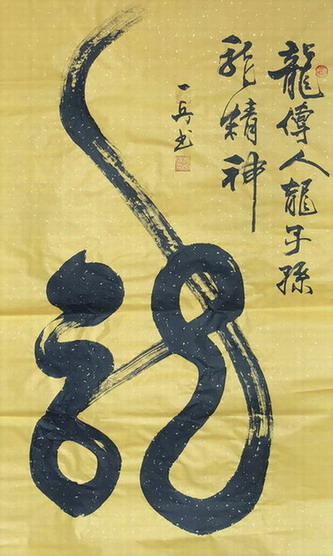 龍傳人龍子孫
龍精神
一兵书
龍